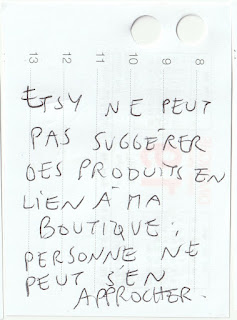 13
12
11
10
9
8
ETSY NE PEUT
PAS SUGGÉRER
DES PRODUITS EN
LIEN À MA
BOUTIQUE :
PERSONNE NE
PEUT S'EN
APPROCHER.